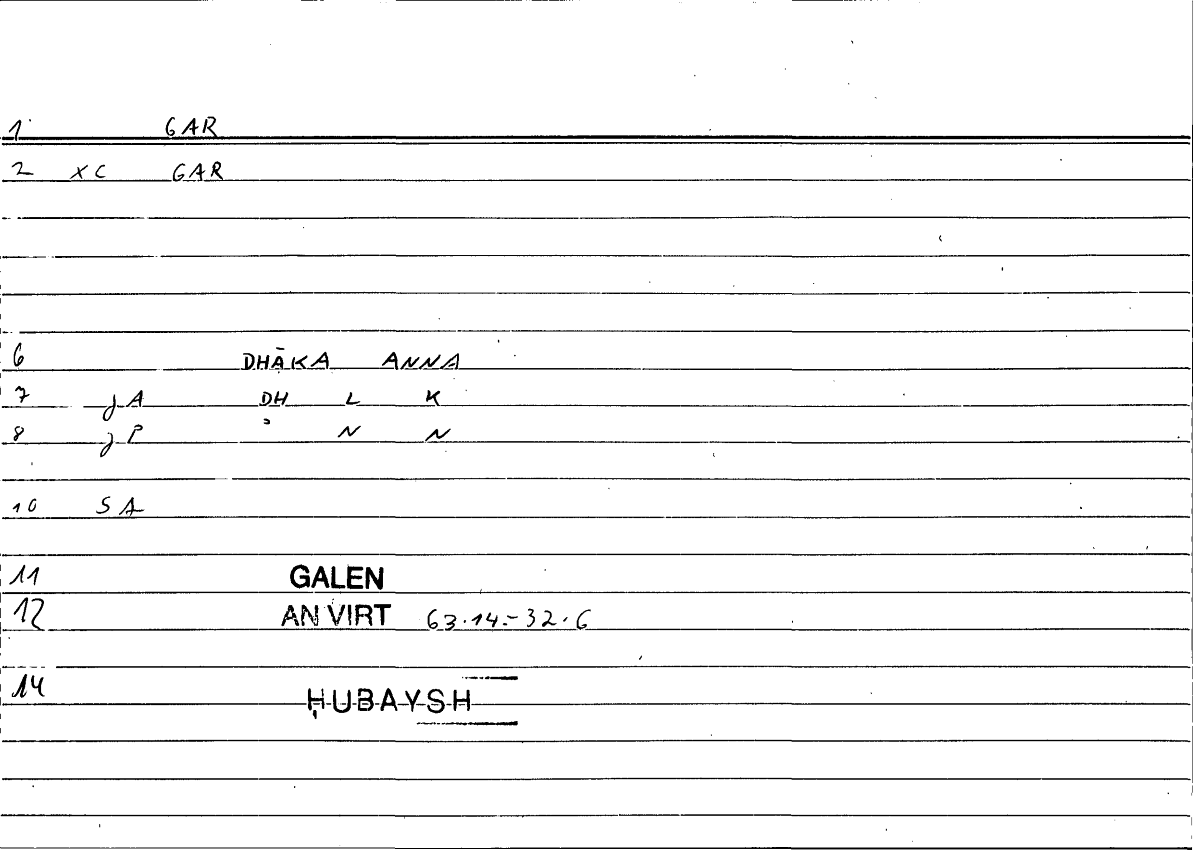 1 GAR
2 XC GAR
6 DHĀKA ANNA
7 jA DH L K
8 jP ˀ N N
10 SA
11 GALEN
12 AN VIRT 63.14.-32.6
14 ḤUBAYSH